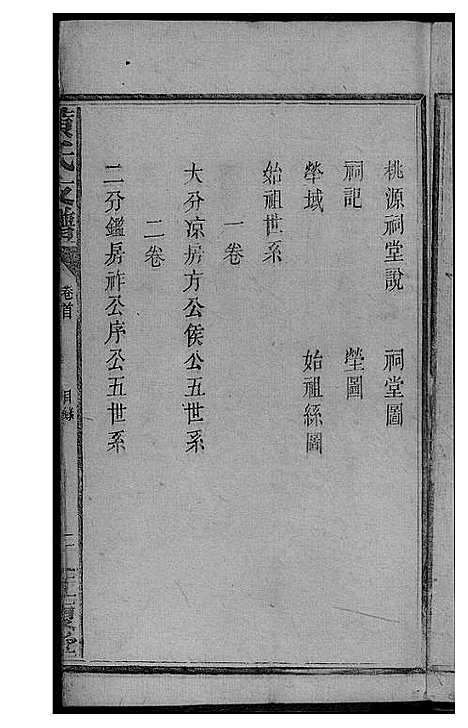 桃源祠堂說 祠堂圖
祠記 塋圖
塋域 始祖絲圖
始祖世系
一卷
大分凉房方公侯公五世系
二卷
二分鑑房祚公序公五世系
黃氏支譜
卷首
目錄
二